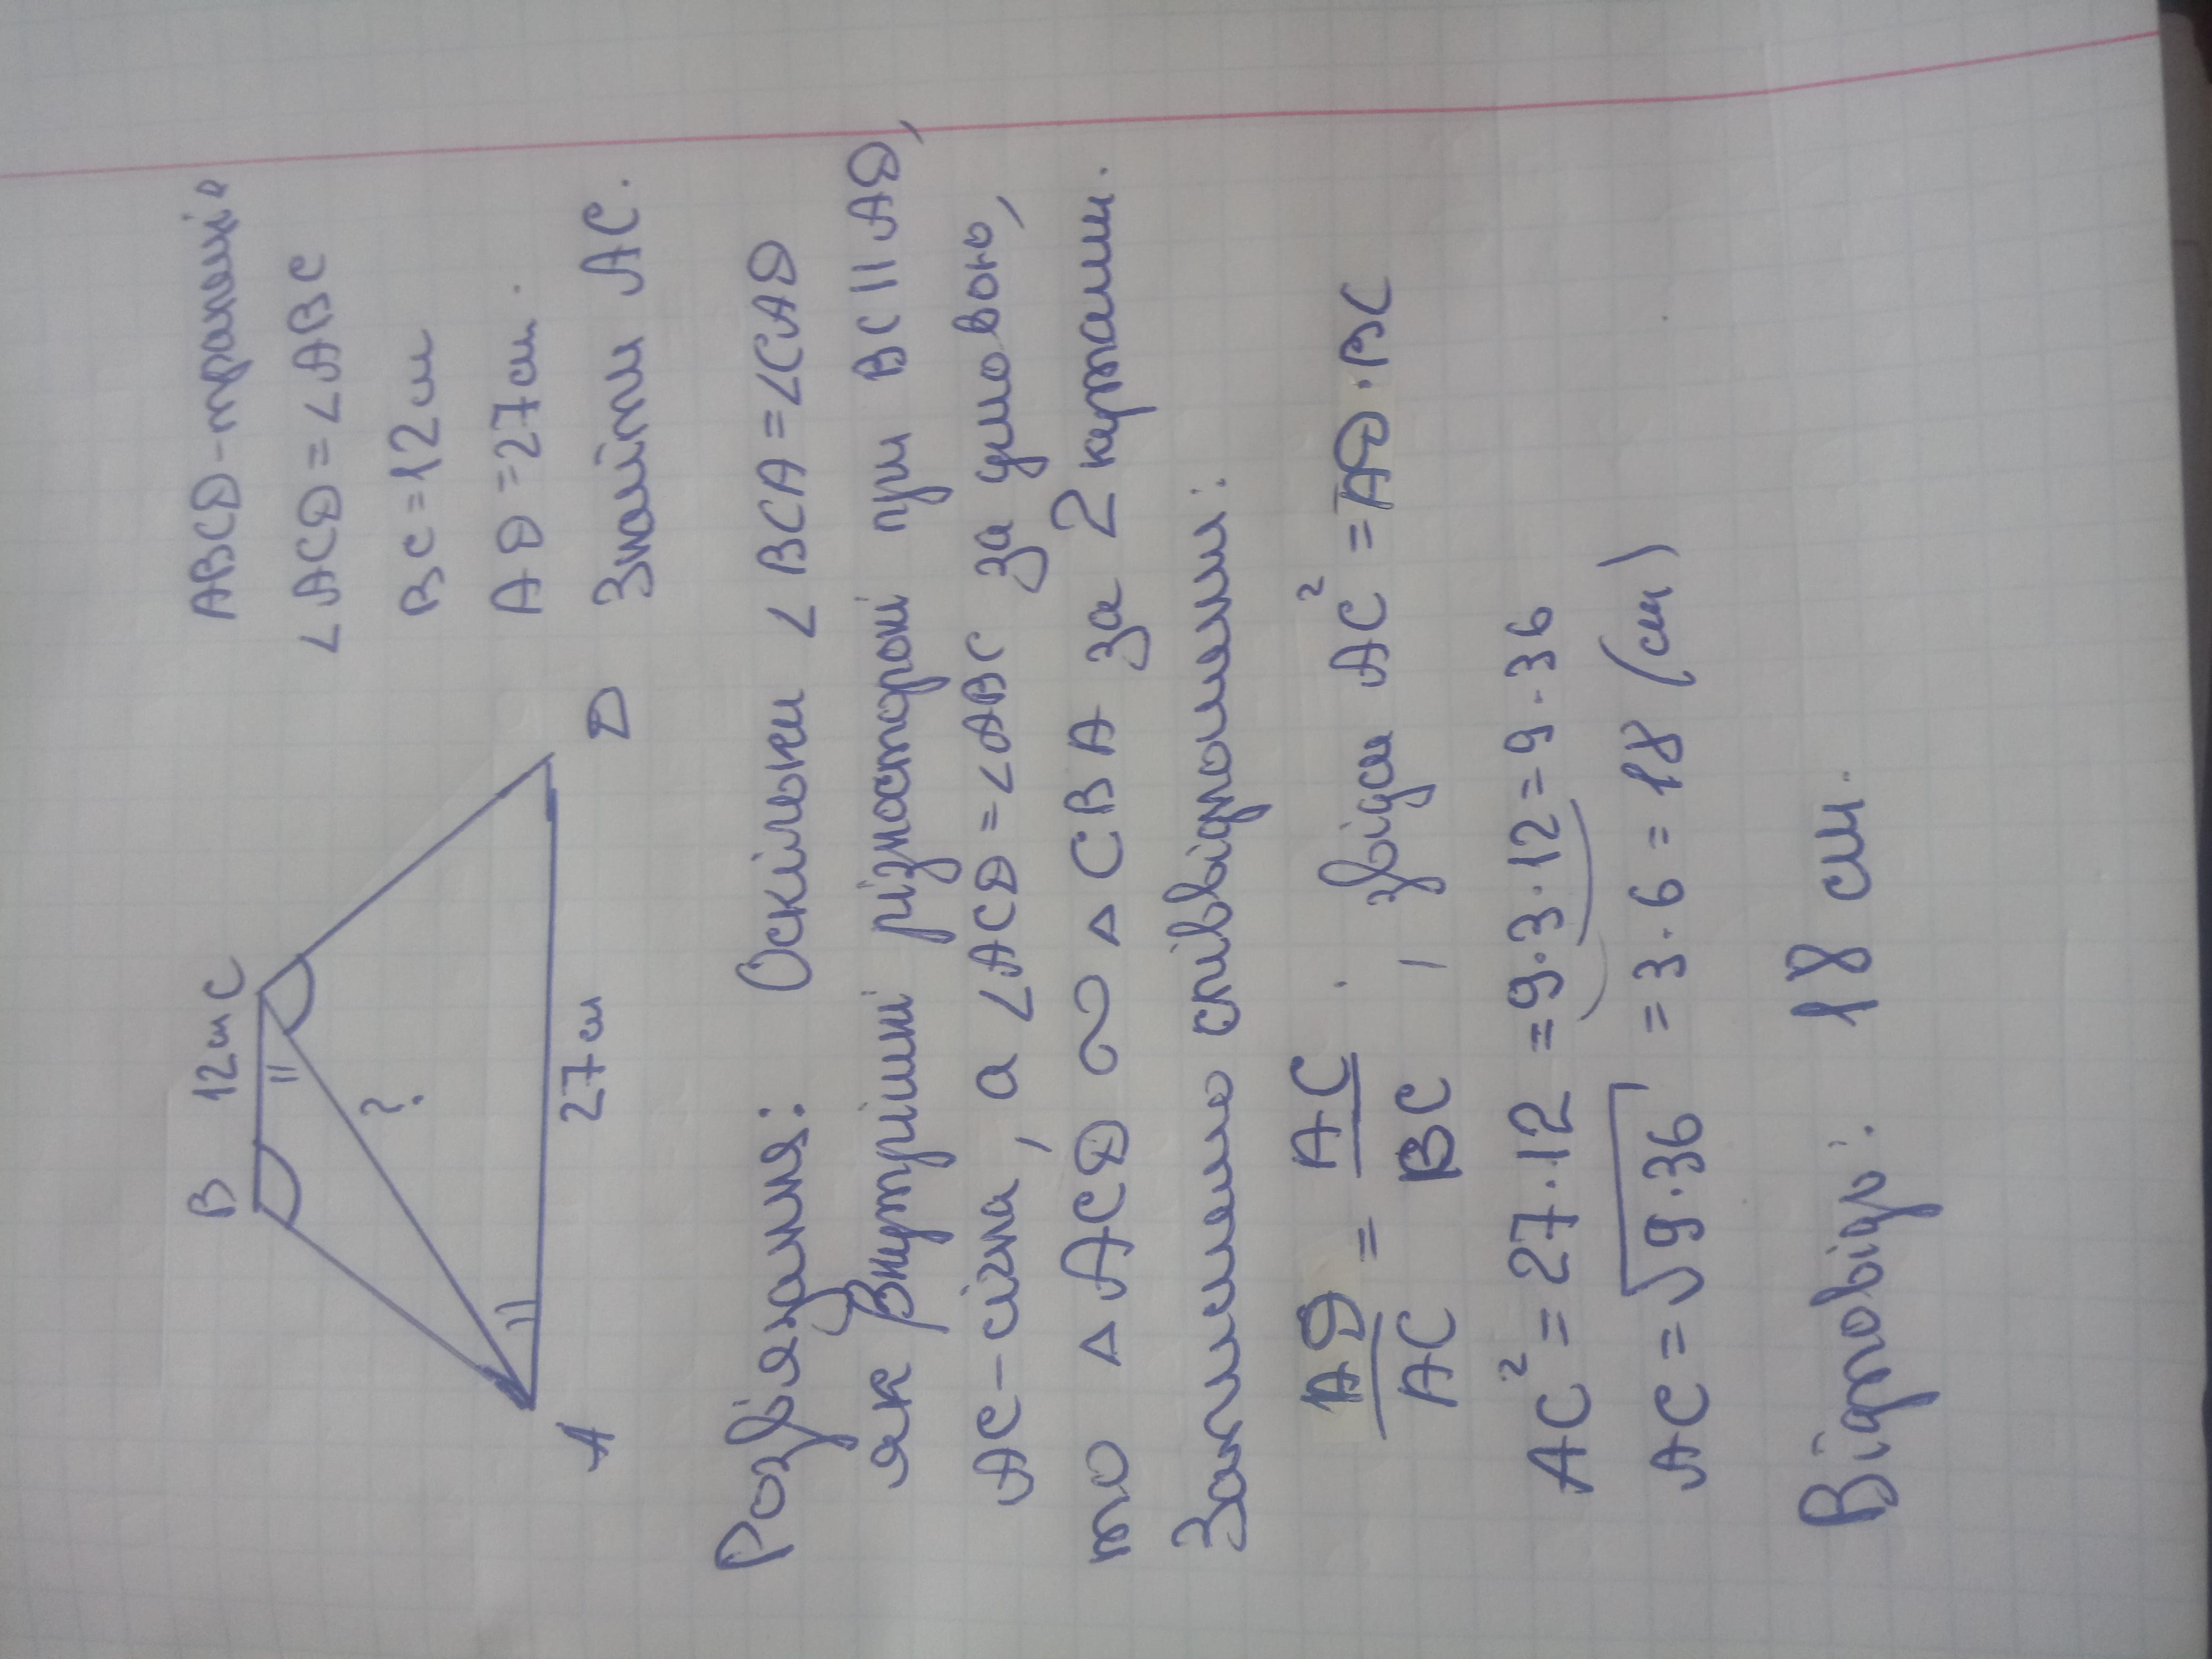 ABCD - трапеція
∠ACD = ∠ABC
BC = 12 см
AD = 27 см.
Знайти AC.
B 12 см C
?
A 27 см D
Розв'язання: Оскільки ∠BCA = ∠CAD
як внутрішні різносторонні при BC || AD,
AC - січна, а ∠ACD = ∠ABC за умовою,
то △ACD ∾ △CBA за 2 кутами.
Запишемо співвідношення:
AD/AC = AC/BC, звідси AC² = AD · BC
AC² = 27 · 12 = 9 · 3 · 12 = 9 · 36
AC = √9 · 36 = 3 · 6 = 18 (см)
Відповідь: 18 см.